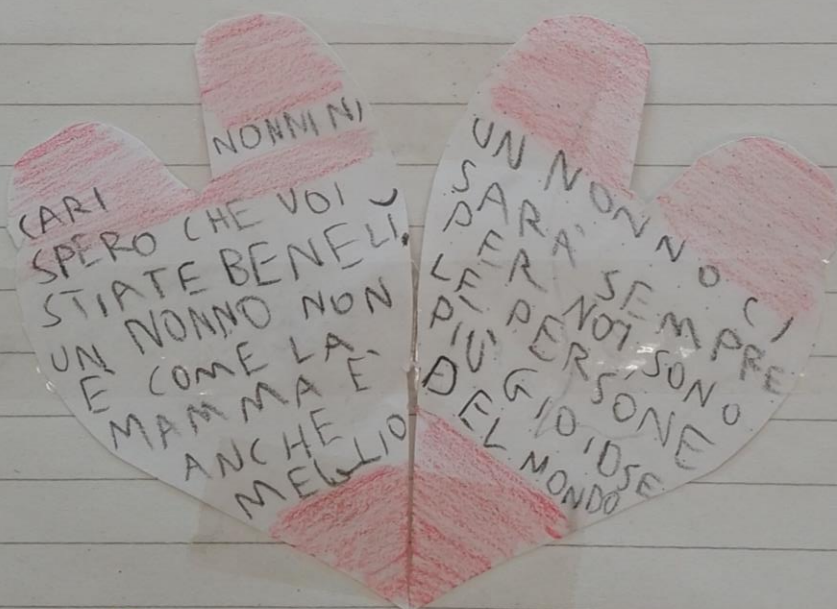 CARI NONNINI
SPERO CHE VOI
STIATE BENE LÌ.
UN NONNO NON
È COME LA
MAMMA È
ANCHE
MEGLIO
UN NONNO CI
SARÀ SEMPRE
PER NOI SONO
LE PERSONE
PIÙ GIOIOSE
DEL MONDO